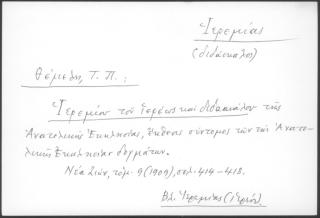 Ἱερεμίας
(διδάσκαλος)
Θέμελη, Τ. Π. :
Ἱερεμίου τοῦ Ἱερέως καὶ διδασκάλου τῆς
Ἀνατολικῆς Ἐκκλησίας, Ἔκθεσις σύντομος τῶν τῆς Ἀνατο-
λικῆς Ἐκκλησίας δογμάτων.
Νέα Σιών, τόμ. 9 (1909), σελ. 414-418.
Βλ. Ἱερεμίας (ἱερεύς)